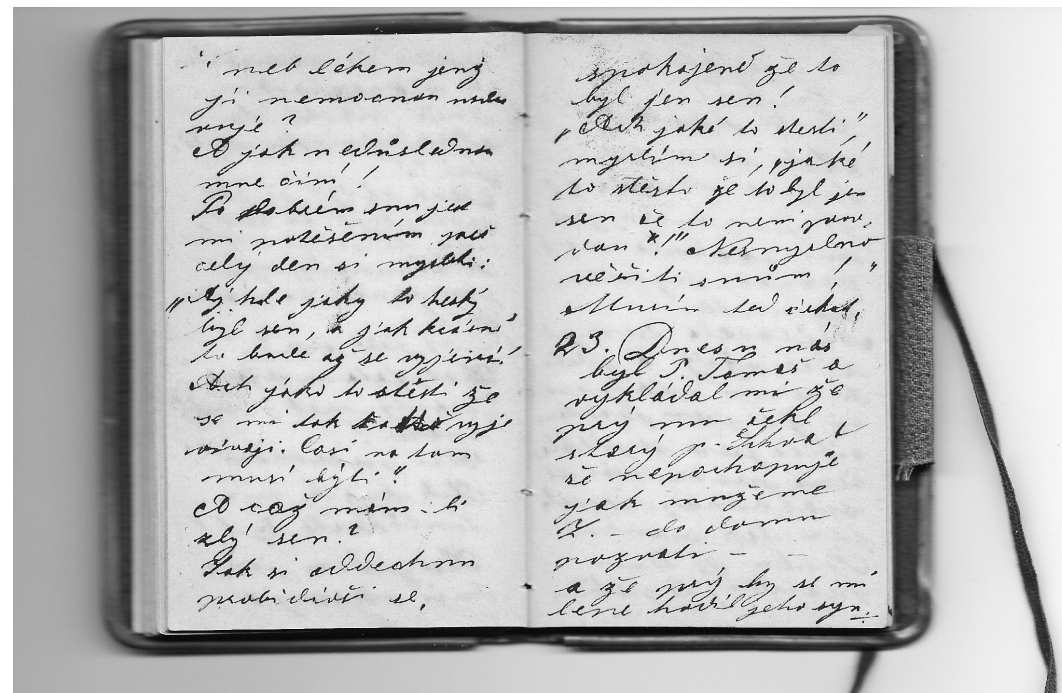 neb lékem jenž
ji nemocnou
vuje?
A jak nedůslednou
mne činí!
Po dobrém snu jest
mi potěšením přes
celý den si mysleti:
„Aj hle jaký to hezký
byl sen, a jak krásné
to bude až se vyjeví!
Ach jaké to štěstí že
se mi tak vyje
vuji. Cosi na tom
musí býti“
A což mám-li
zlý sen?
Jak si oddechnu
probudivši se,
spokojeně že to
byl jen sen!
„Ach jaké to štestí“,
myslím si, „jaké
to štěstí že to byl jen
sen že to není prav-
dou“!! Nesmyslno
věřiti snům!“
Musím teď čekat.
23. Dnes u nás
byl P. Tomeš a
vykládal mi že
prý mu řekl
starý p.
že nepochopuje
jak můžeme
Z. – do domu
pozvati – –
a že prý by se mi
lépe hodil jeho syn.